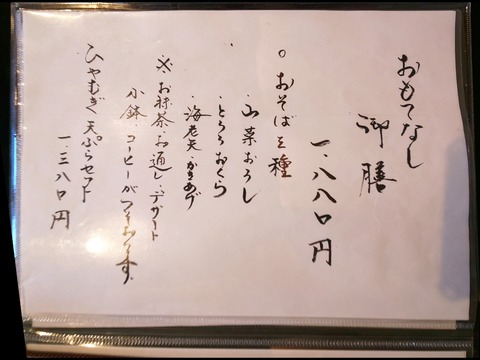 おもてなし
御膳
一、八八〇円
○おそば三種
・山菜おろし
・とろろおくら
・海老天・かきあげ
※お抹茶・お通し・デザート
小鉢 コーヒーがつきます
ひやむぎ天ぷらセット
一、三八〇円